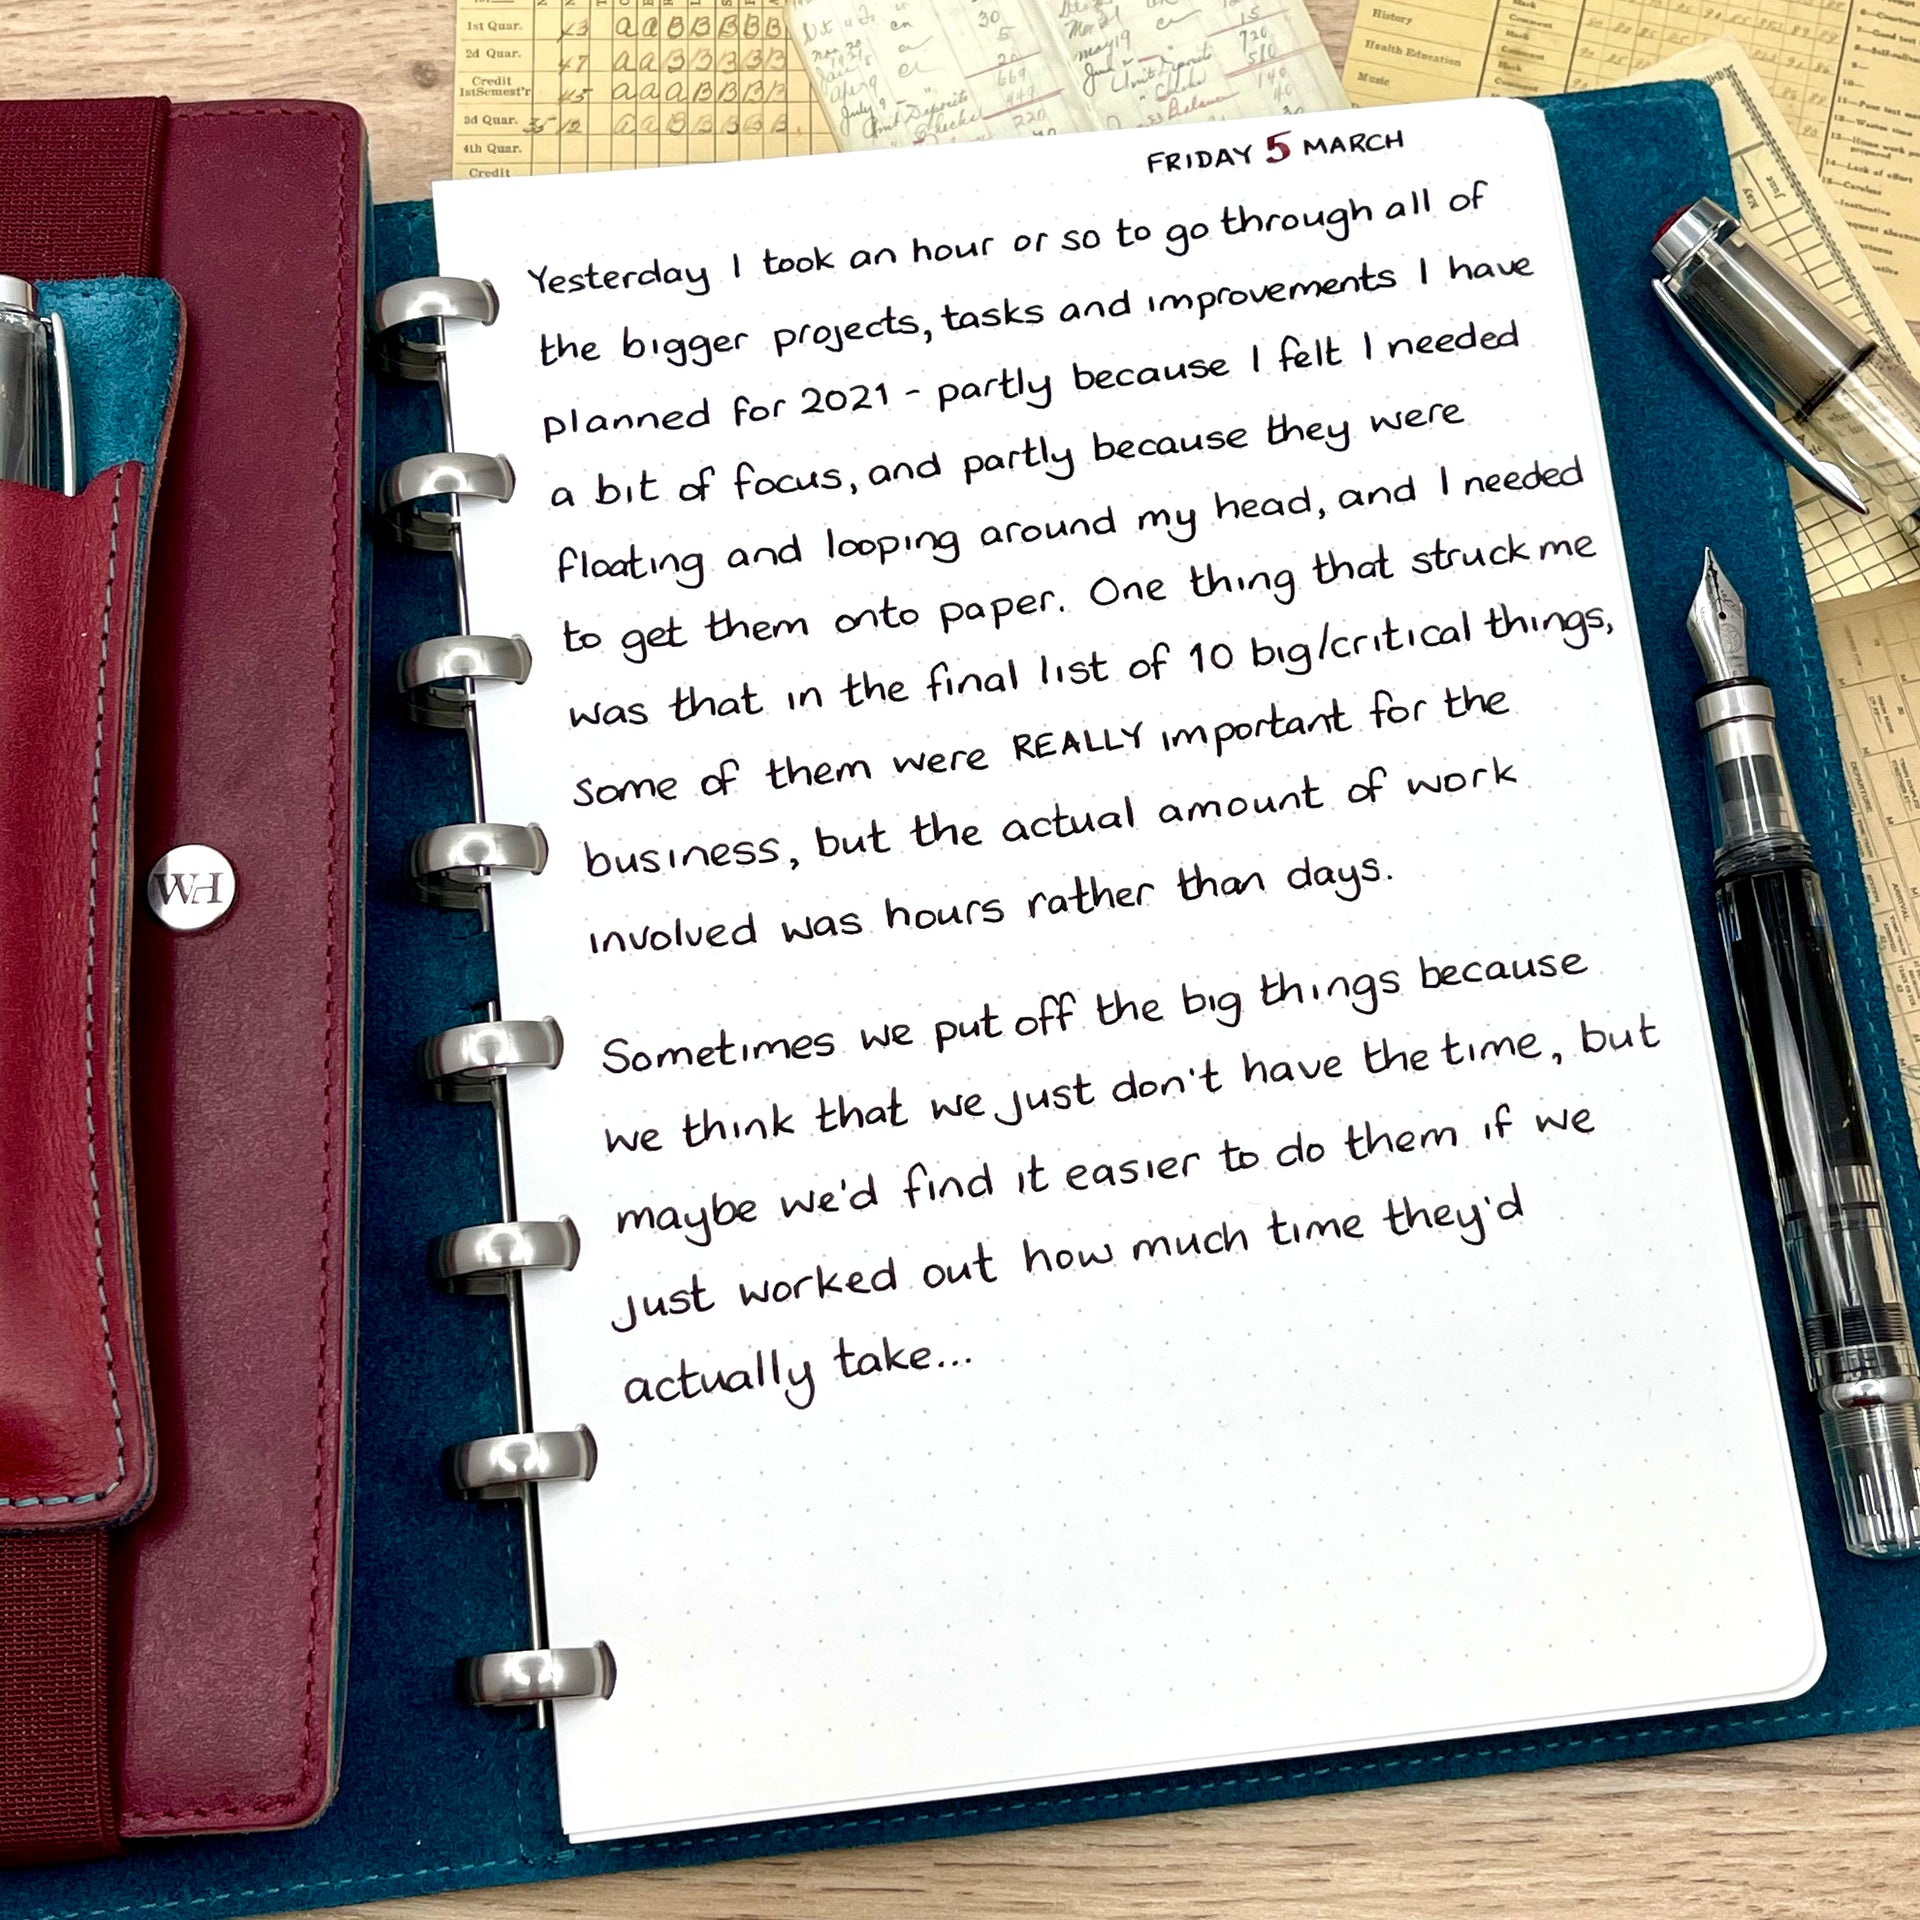 1st Quar. 43 a a B B B B B
2d Quar. 47 a a B B B B B
Credit
1stSemest'r 45 a a a B B B B
3d Quar. 35 12 a a B B B B B
4th Quar.
Credit
30
5
20
669
449
220
July 9
Deposits
Checks
May 19
15
720
510
140
Deposits
Checks
Balance
History
Health Education
Music
Comment
Mark
Comment
Mark
Comment
May
June
FRIDAY 5 MARCH
Yesterday I took an hour or so to go through all of
the bigger projects, tasks and improvements I have
planned for 2021 - partly because I felt I needed
a bit of focus, and partly because they were
floating and looping around my head, and I needed
to get them onto paper. One thing that struck me
was that in the final list of 10 big/critical things,
some of them were REALLY important for the
business, but the actual amount of work
involved was hours rather than days.
Sometimes we put off the big things because
we think that we just don't have the time, but
maybe we'd find it easier to do them if we
just worked out how much time they'd
actually take...
WH